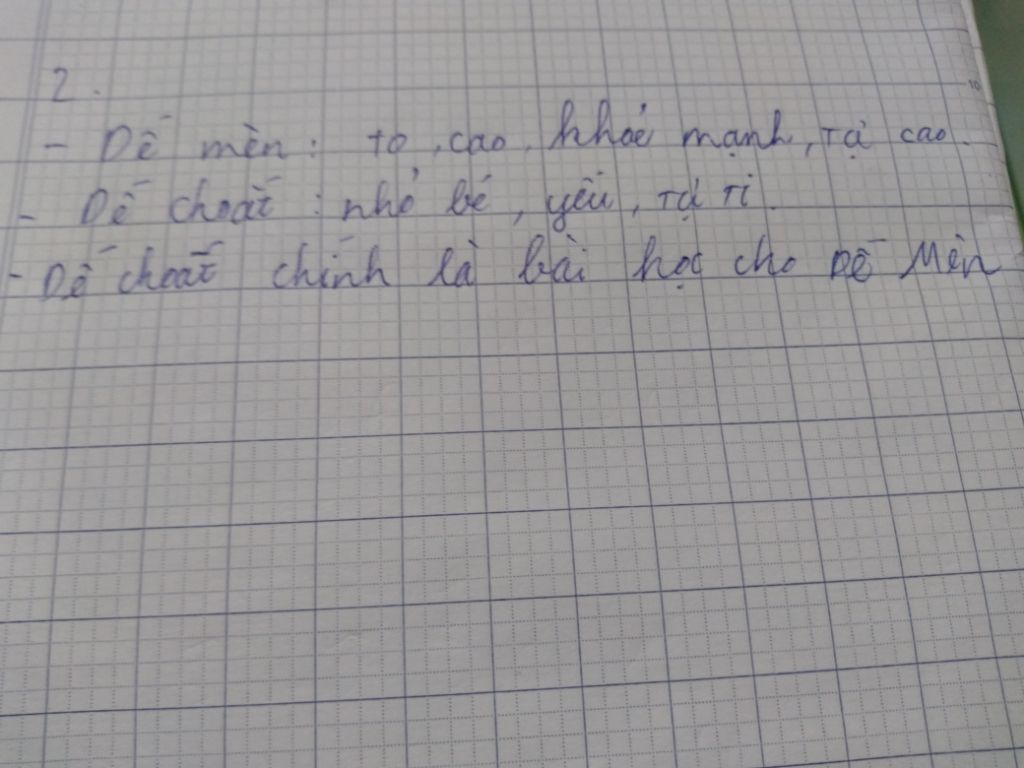 2.
- Dế mèn: to, cao, khoẻ mạnh, tự cao.
- Dế choắt: nhỏ bé, yếu, tự ti.
- Dế choắt chính là bài học cho Dế Mèn
10